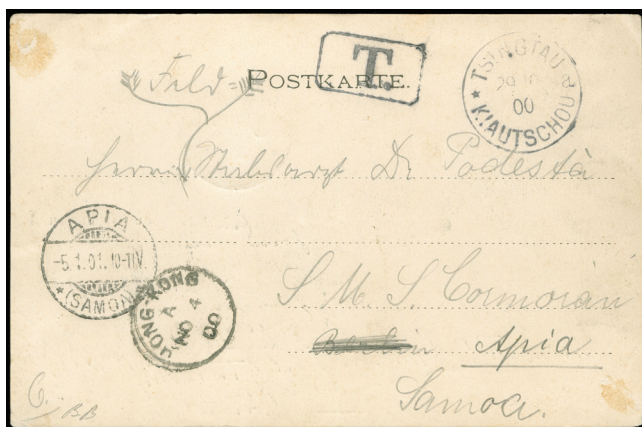 T.
Feld=POSTKARTE.
TSINGTAU a
29 10
00
★ KIAUTSCHOU ★
Herrn Stabsarzt Dr. Podestà
APIA
-5.1.01. 10-11V.
★ (SAMOA)
HONG-KONG
A
NO 4
00
S. M. S. Cormoran
Berlin Apia
Samoa.
6. BB